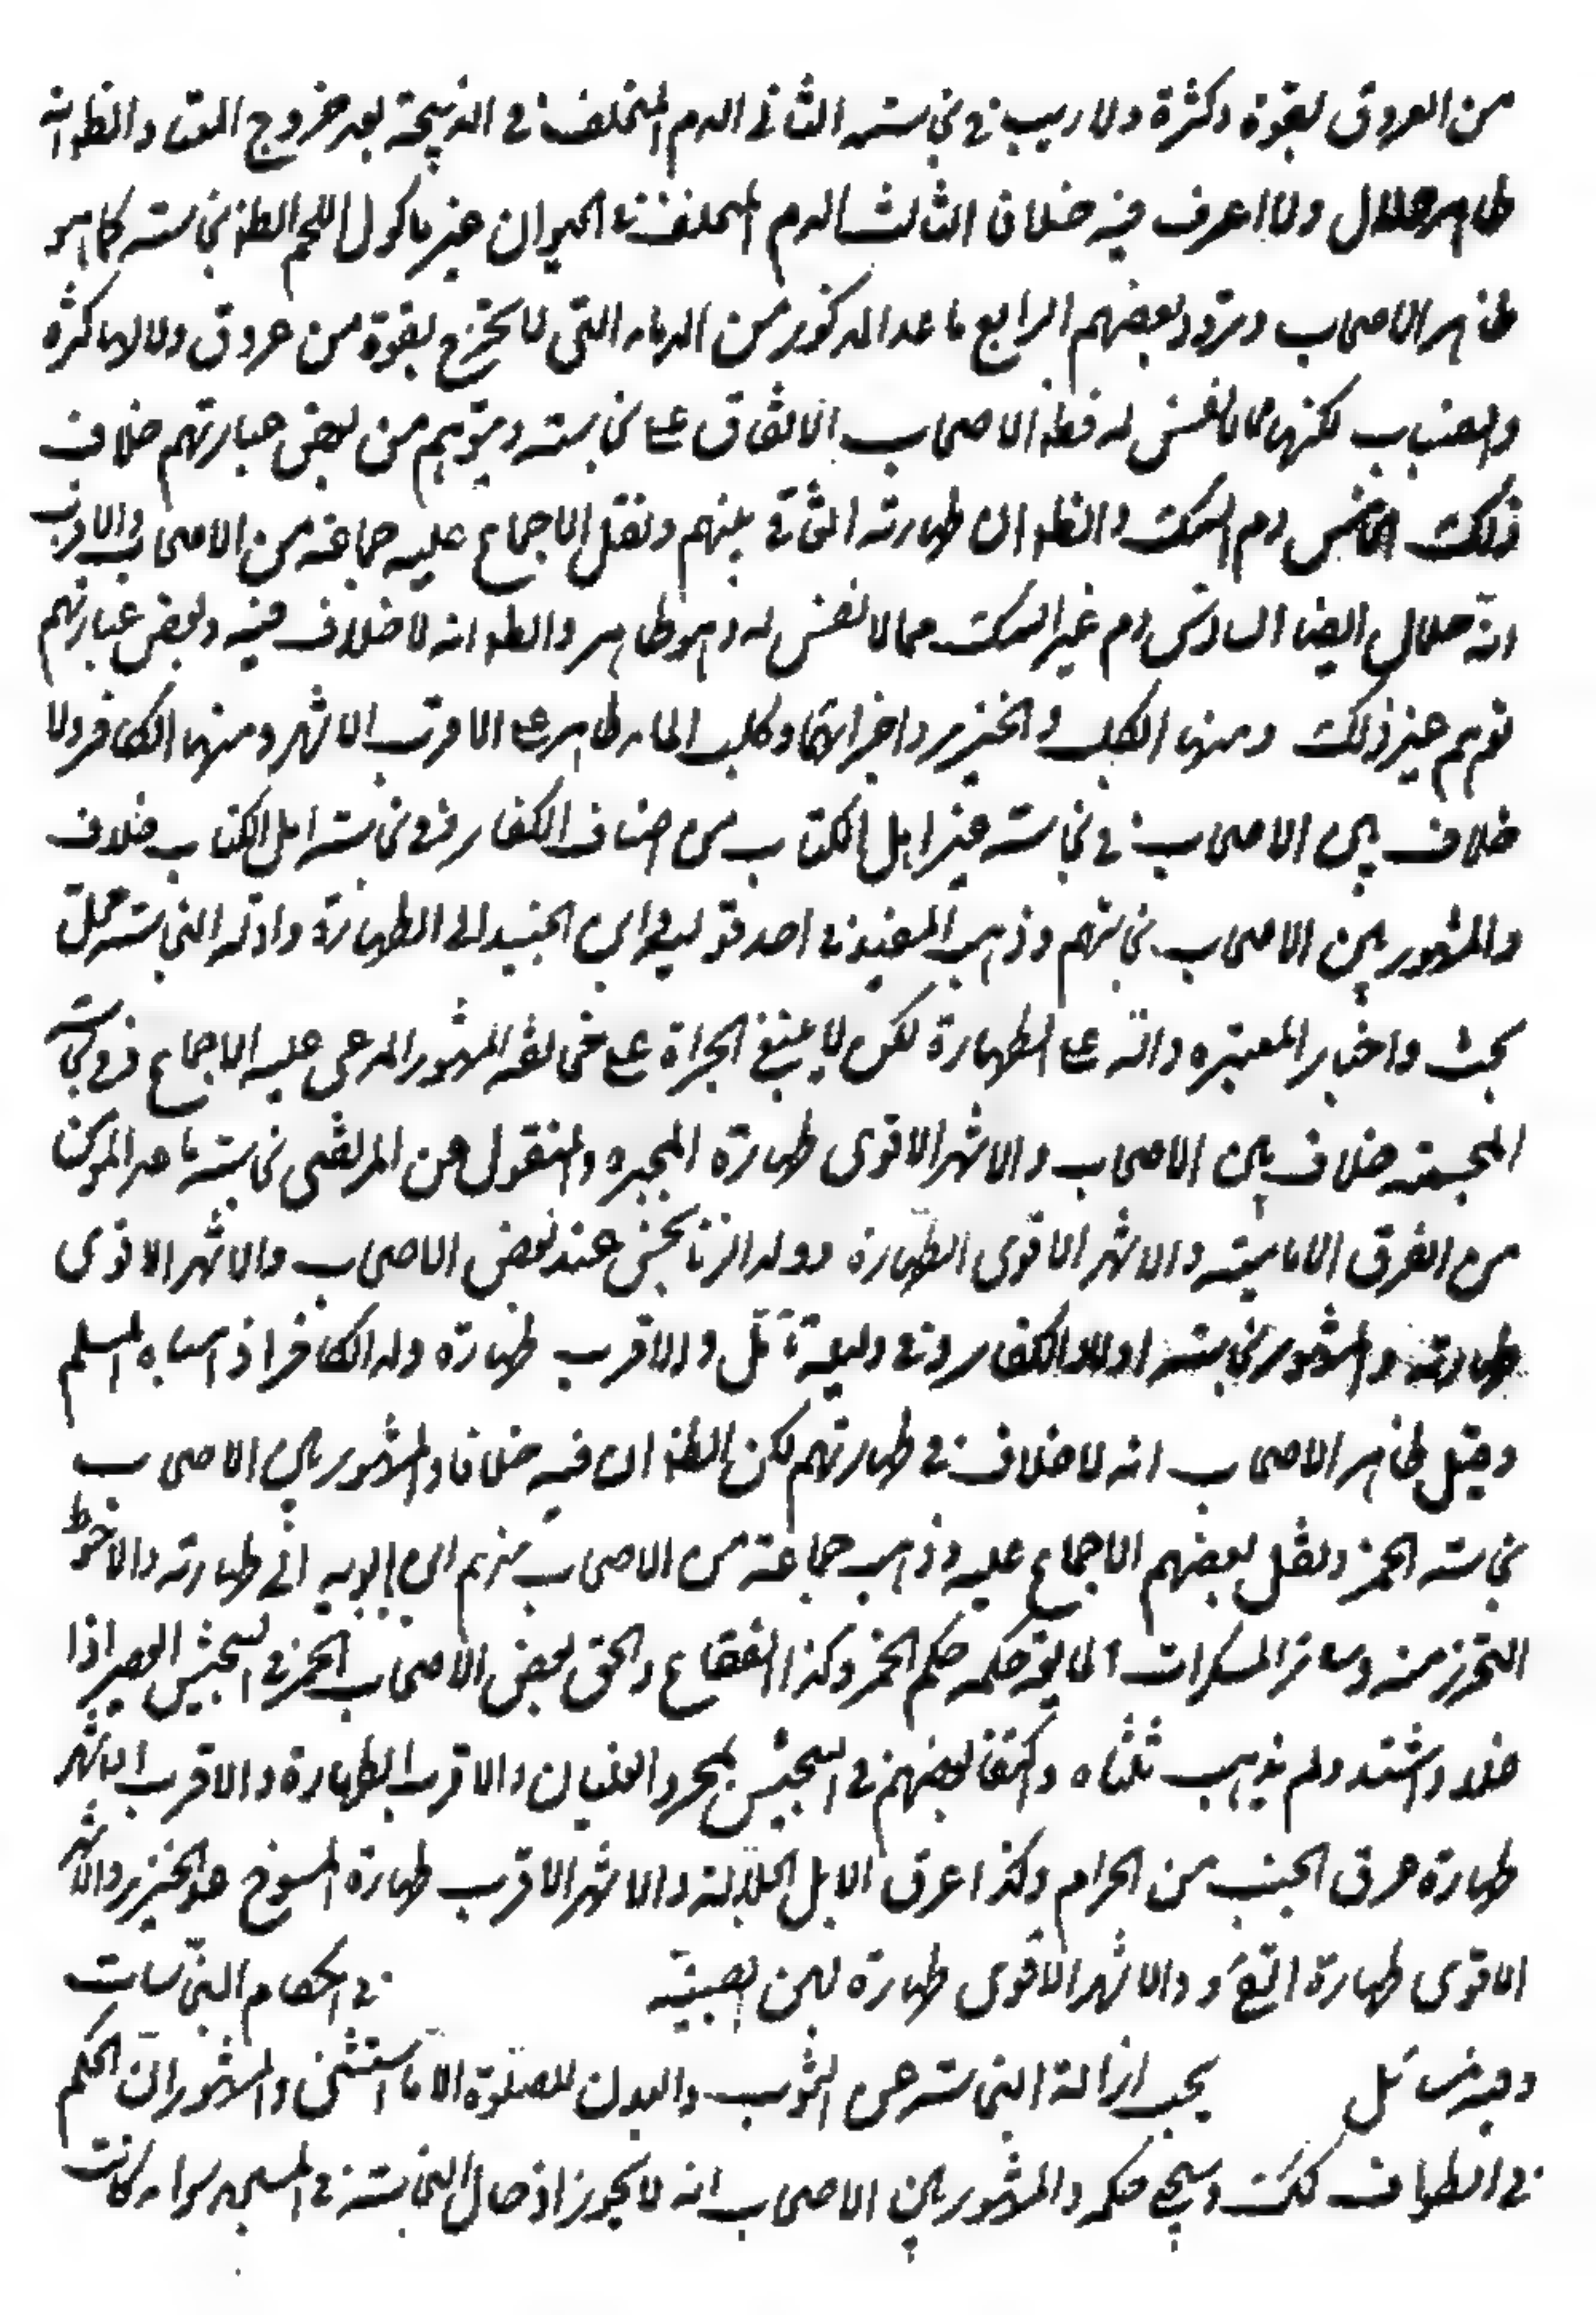 من العروق بقوة وكثرة ولا ريب في نجاسته الثاني الدم المتخلف في الذبيحة بعد خروج المعتاد والظ انه
طاهر حلال ولا اعرف فيه خلافا الثالث الدم المتخلف في الحيوان غير ماكول اللحم الظ نجاسته كما هو
ظاهر الاصحاب وتردد بعضهم الرابع ما عدا المذكور من الدماء التي لا تخرج بقوة من عروق ولا لها كثرة
وانصباب لكنها مما له نفس فظ الاصحاب الاتفاق على نجاسته ويتوهم من بعض عباراتهم خلاف
ذلك الخامس دم السمك والظ ان طهارته اتفاقي بينهم ونقل الاجماع عليه جماعة من الاصحاب والاقرب
انه حلال ايضا السادس دم غير السمك مما لا نفس له وهو طاهر والظ انه لا خلاف فيه وبعض عباراتهم
توهم غير ذلك ومنها الكلب والخنزير واجزائهما وكلب الماء طاهر على الاقرب الاشهر ومنها الكافر ولا
خلاف بين الاصحاب في نجاسة غير اهل الكتاب من اصناف الكفار وفي نجاسة اهل الكتاب خلاف
والمشهور بين الاصحاب نجاستهم وذهب المفيد في احد قوليه وابن الجنيد الى الطهارة وادلة النجاسة محل
بحث واخبار المعتبره دالة على الطهارة لكن لا ينبغي الجراة على مخالفة المشهور المدعى عليه الاجماع وفي نجاسة
المجسمة خلاف بين الاصحاب والاشهر الاقوى طهارة المجبره والمنقول عن المرتضى نجاسة ما عدا المؤمن
من الفرق الامامية والاشهر الاقوى الطهارة وولد الزنا نجس عند بعض الاصحاب والاشهر الاقوى
طهارته والمشهور نجاسة اولاد الكفار وفي دليله تامل والاقرب طهارة ولد الكافر اذ اسباه المسلم
وقيل ظاهر الاصحاب انه لا خلاف في طهارتهم لكن الظ ان فيه خلافا والمشهور بين الاصحاب
نجاسة الخمر ونقل بعضهم الاجماع عليه وذهب جماعة من الاصحاب منهم ابن بابويه الى طهارته والاحوط
التحرز منه وسائر المسكرات المايعة حكمه حكم الخمر وكذا الفقاع والحق بعض الاصحاب بالخمر في التنجيس العصير اذا
غلا واشتد ولم يذهب ثلثاه واكتفا بعضهم في التنجيس بمجرد الغليان والاقرب الطهارة والاقرب الاشهر
طهارة عرق الجنب من الحرام وكذا عرق الابل الجلالة والاشهر الاقرب طهارة المسوخ عدا الخنزير والاشهر
الاقوى طهارة القيء والاشهر الاقوى طهارة لبن الصبية في احكام النجاسات
وفيه مسائل يجب ازالة النجاسة عن الثوب والبدن للصلوة الا ما استثنى والمشهور ان الحكم
في الطواف كك وسيجئ حكمه والمشهور بين الاصحاب انه لا يجوز ادخال النجاسة في المسجد سواء كانت